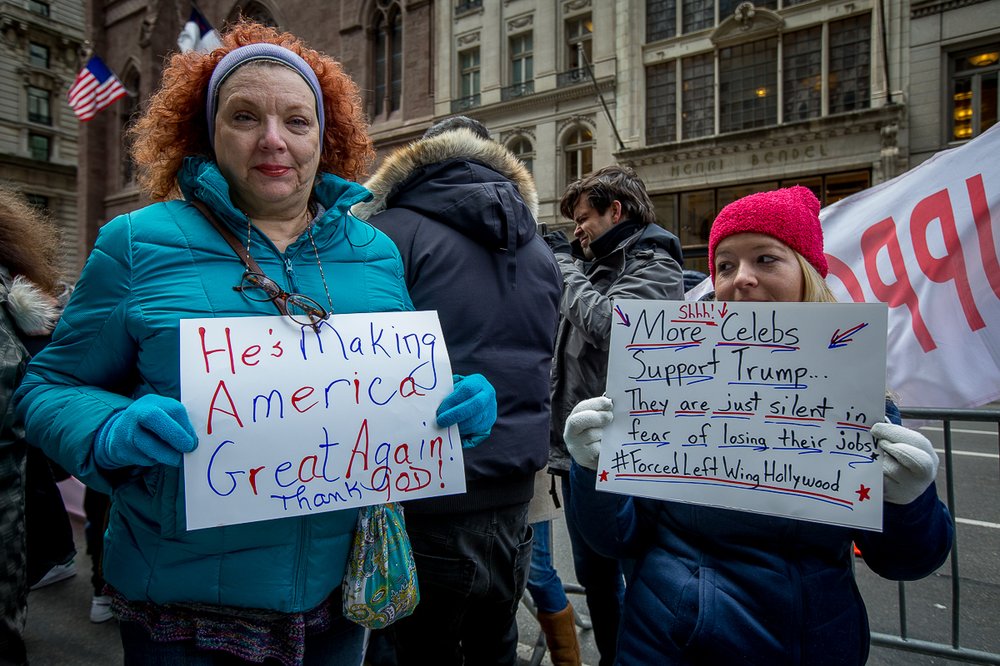 He's Making
America
Great Again!
Thank GOD!
Shhh!
More Celebs
Support Trump...
They are just silent in
fear of losing their jobs!
#ForcedLeftWingHollywood
HENRI BENDEL
UPPO